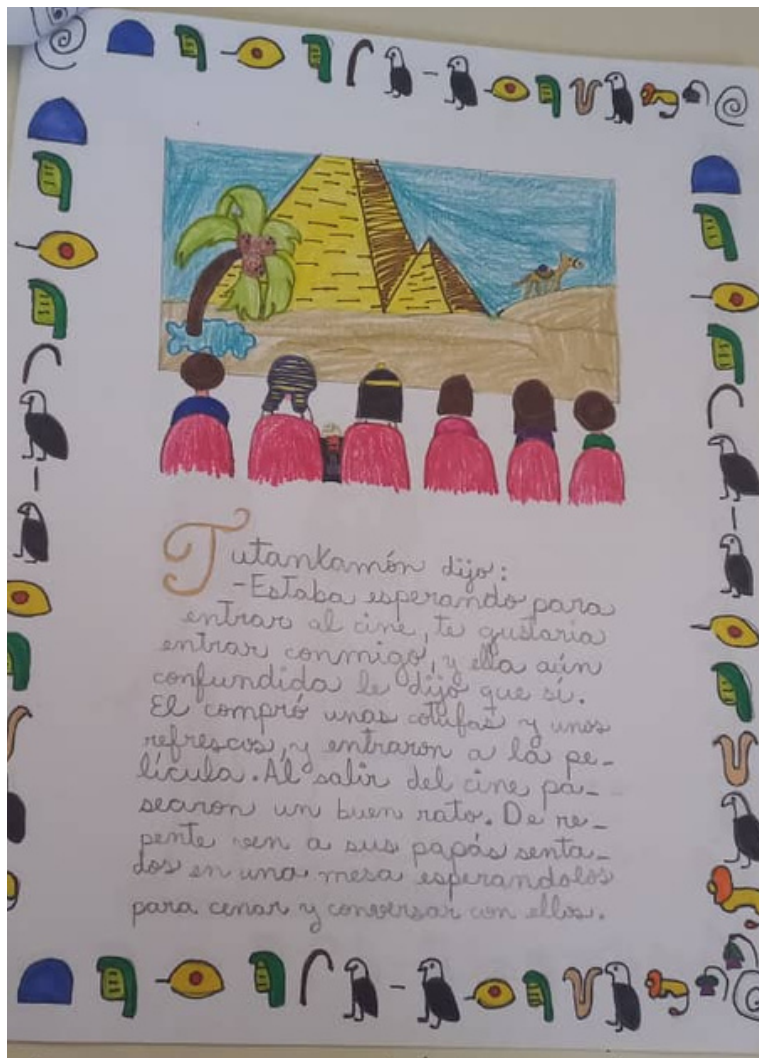 Tutankamón dijo:
-Estaba esperando para
entrar al cine, te gustaria
entrar conmigo, y ella aún
confundida le dijo que sí.
El compró unas cotufas y unos
refrescos, y entraron a la pe-
lícula. Al salir del cine pa-
searon un buen rato. De re-
pente ven a sus papás senta-
dos en una mesa esperandolos
para cenar y conversar con ellos.